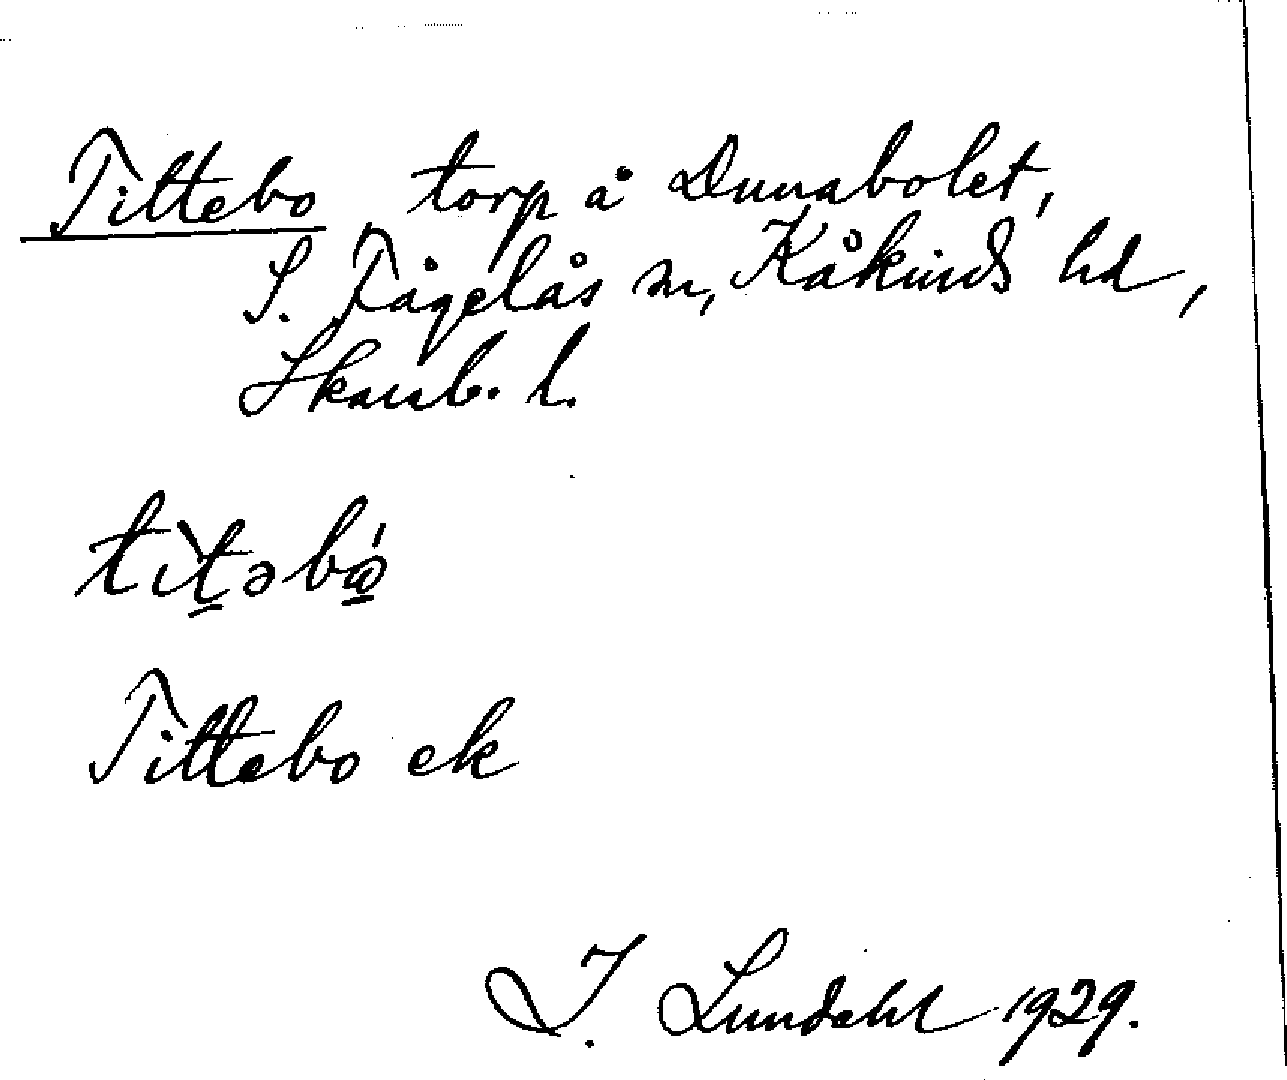 Tittebo torp å Dunabolet,
S. Fågelås sn, Kåkinds hd,
Skarab. l.
tìt̠əbώ̠
Tittebo ek
I. Lundahl 1929.